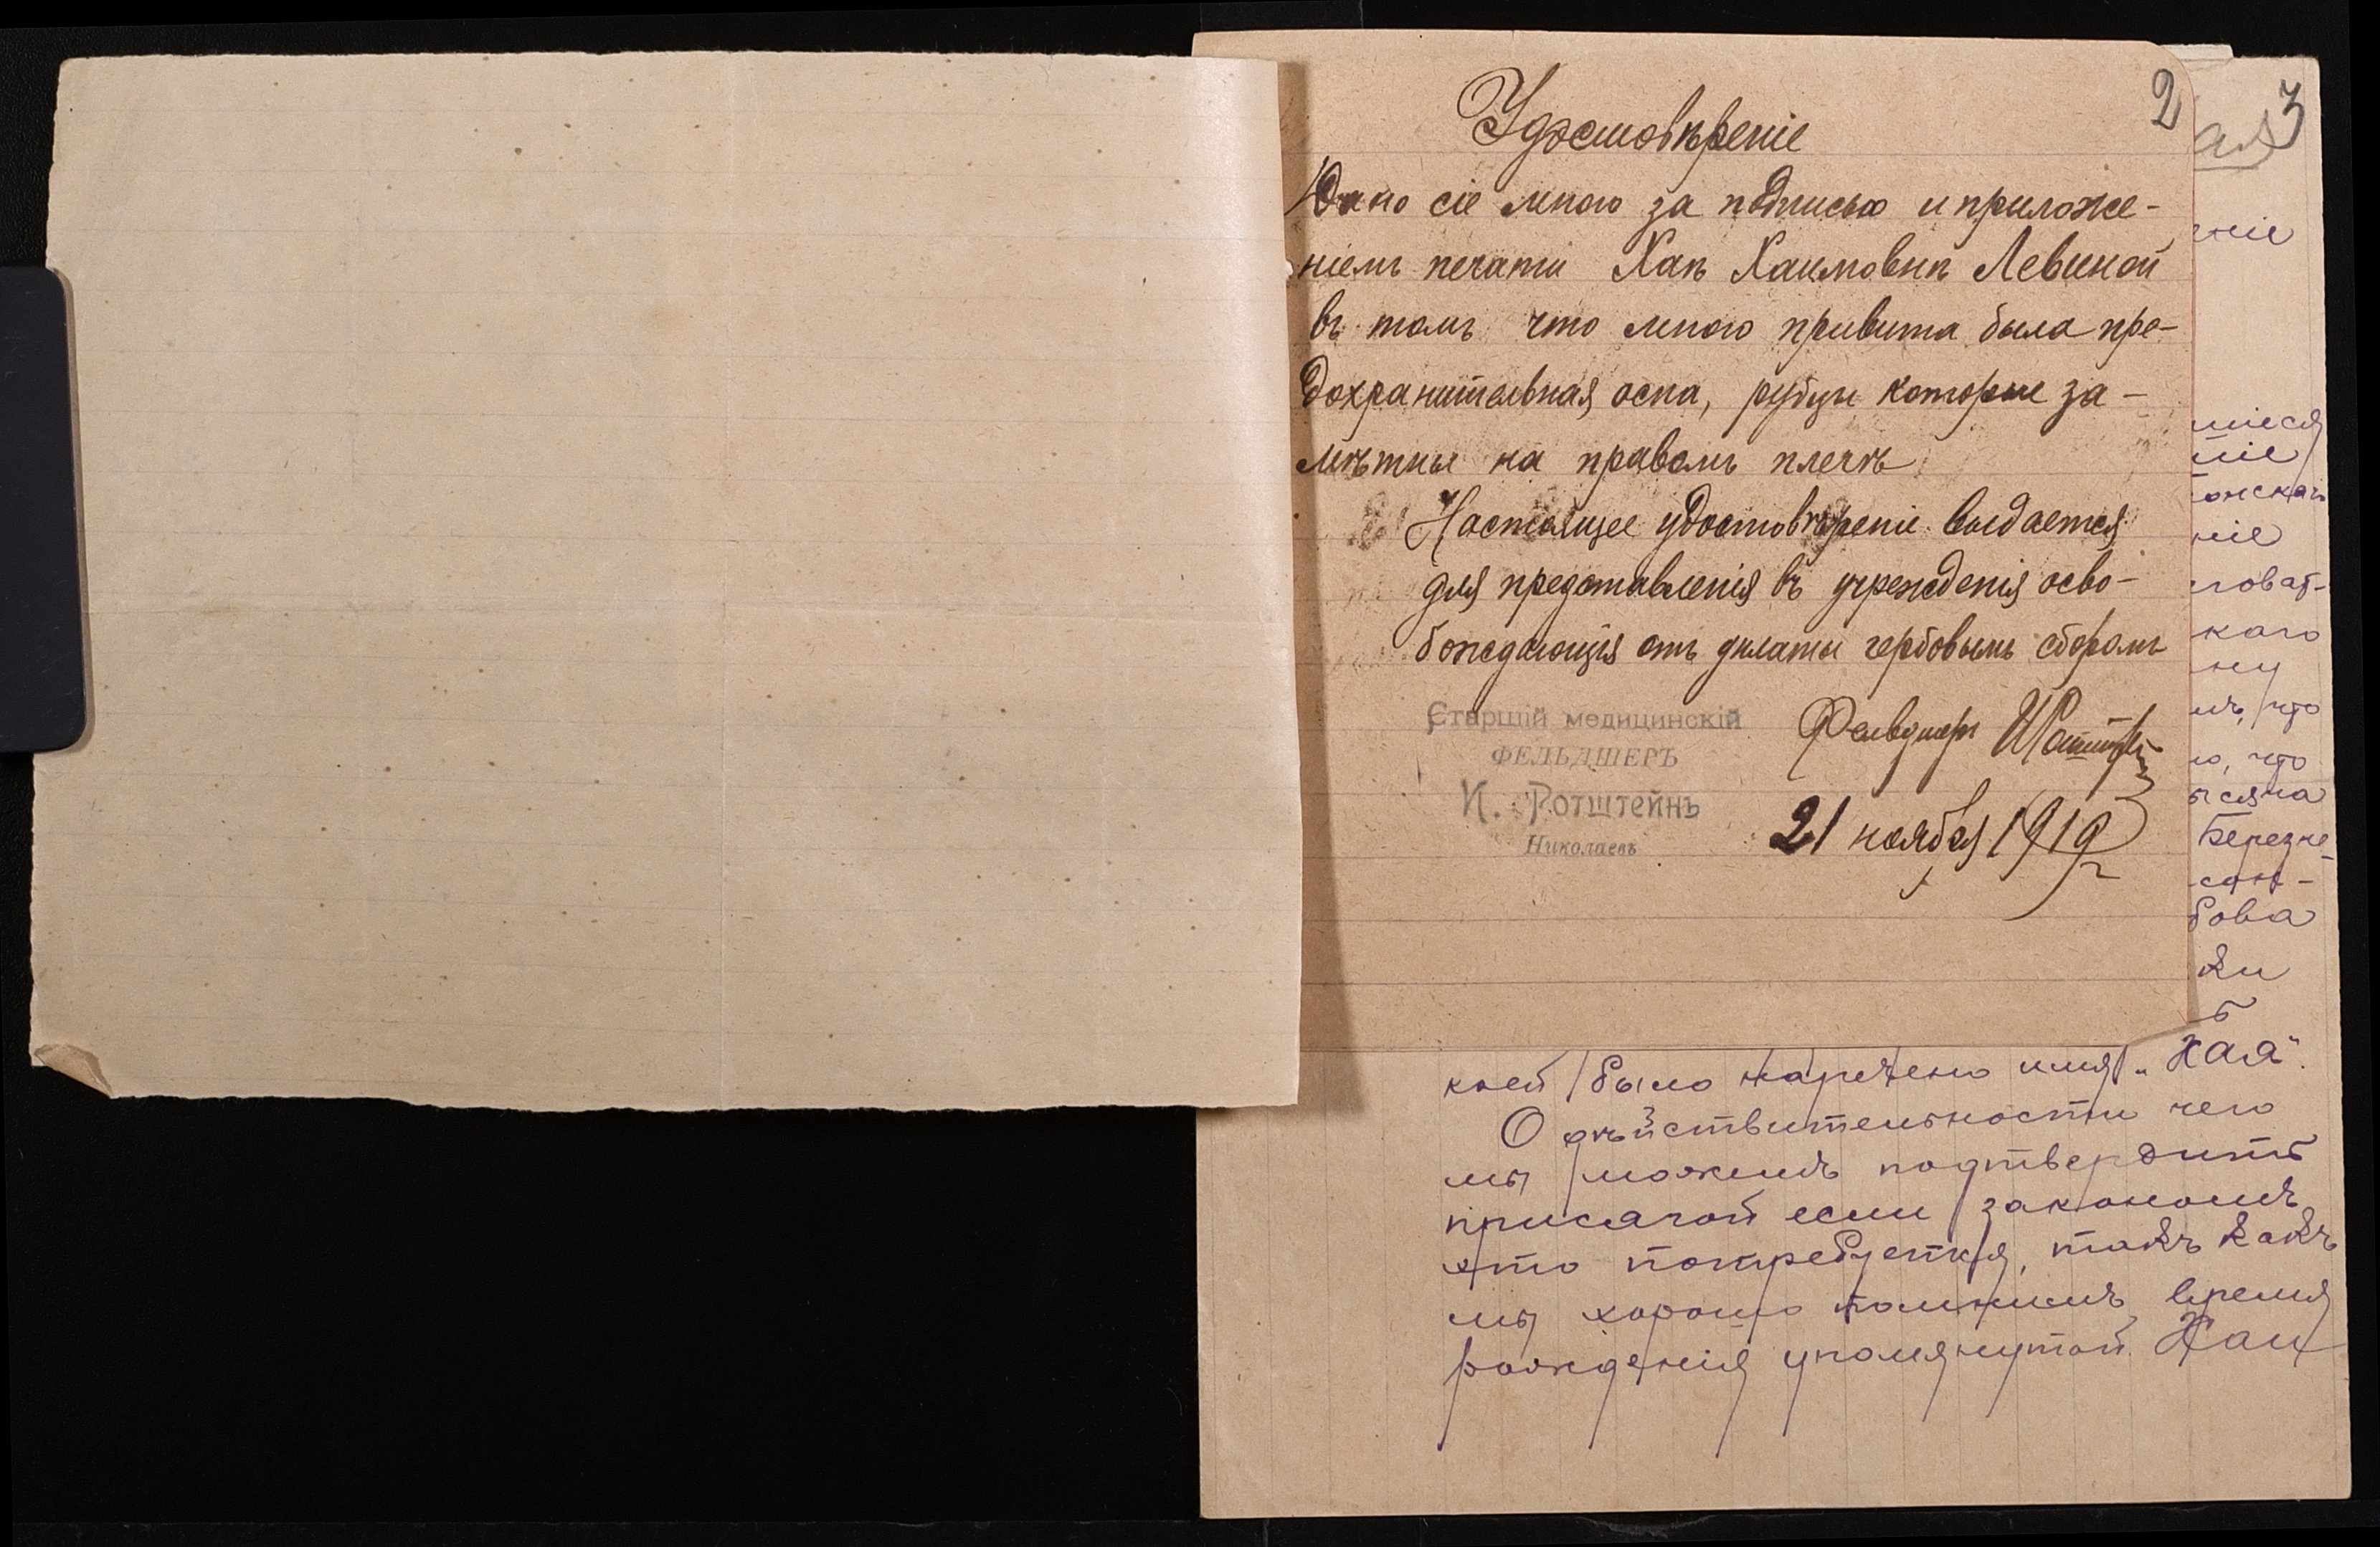 2
Удостовѣреніе
Дано сіе мною за подписью и приложе-
ніемъ печати Хаѣ Хаимовнѣ Левиной
въ томъ что мною привита была пре-
дохранительная оспа, рубцы которые за-
мѣтны на правомъ плечѣ
Настоящее удостовѣреніе выдается
для представленія въ учрежденія осво-
бождающія отъ уплаты гербовымъ сборомъ
Старшій медицинскій
ФЕЛЬДШЕРЪ
И. Ротштейнъ
Николаевъ
Фельдшеръ
21 ноября 1919
3
ая
ніе
шіеся
ніе
ловат-
каго
ну
мъ, что
о, что
Березне
бова
коей было наречено имя „Хая".
О дѣйствительности чего
мы можемъ подтвердить
присягой если закономъ
это потребуется, такъ какъ
мы хорошо помнимъ время
рожденія упомянутой Хаи